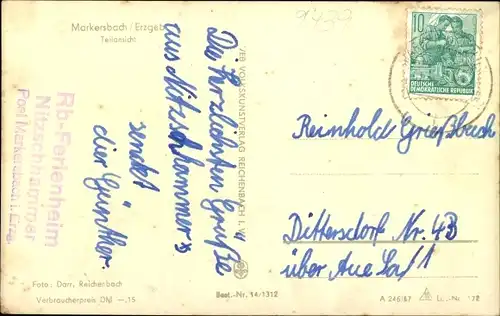 Markersbach / Erzgeb
Teilansicht
9432
Rb-Ferienheim
Nitzschhammer
Post Markersbach i. Erzg.
Die herzlichsten Grüße
aus Nitzschhammer
sendet
dir Günther.
VEB VOLKSKUNSTVERLAG REICHENBACH I. V.
10
DEUTSCHE
DEMOKRATISCHE REPUBLIK
Reinhold Greißbach
Dittersdorf Nr. 4B
über Aue Sa/1
Foto: Darr, Reichenbach
Verbraucherpreis DM —.15
Best.-Nr. 14/1312
A 246/57